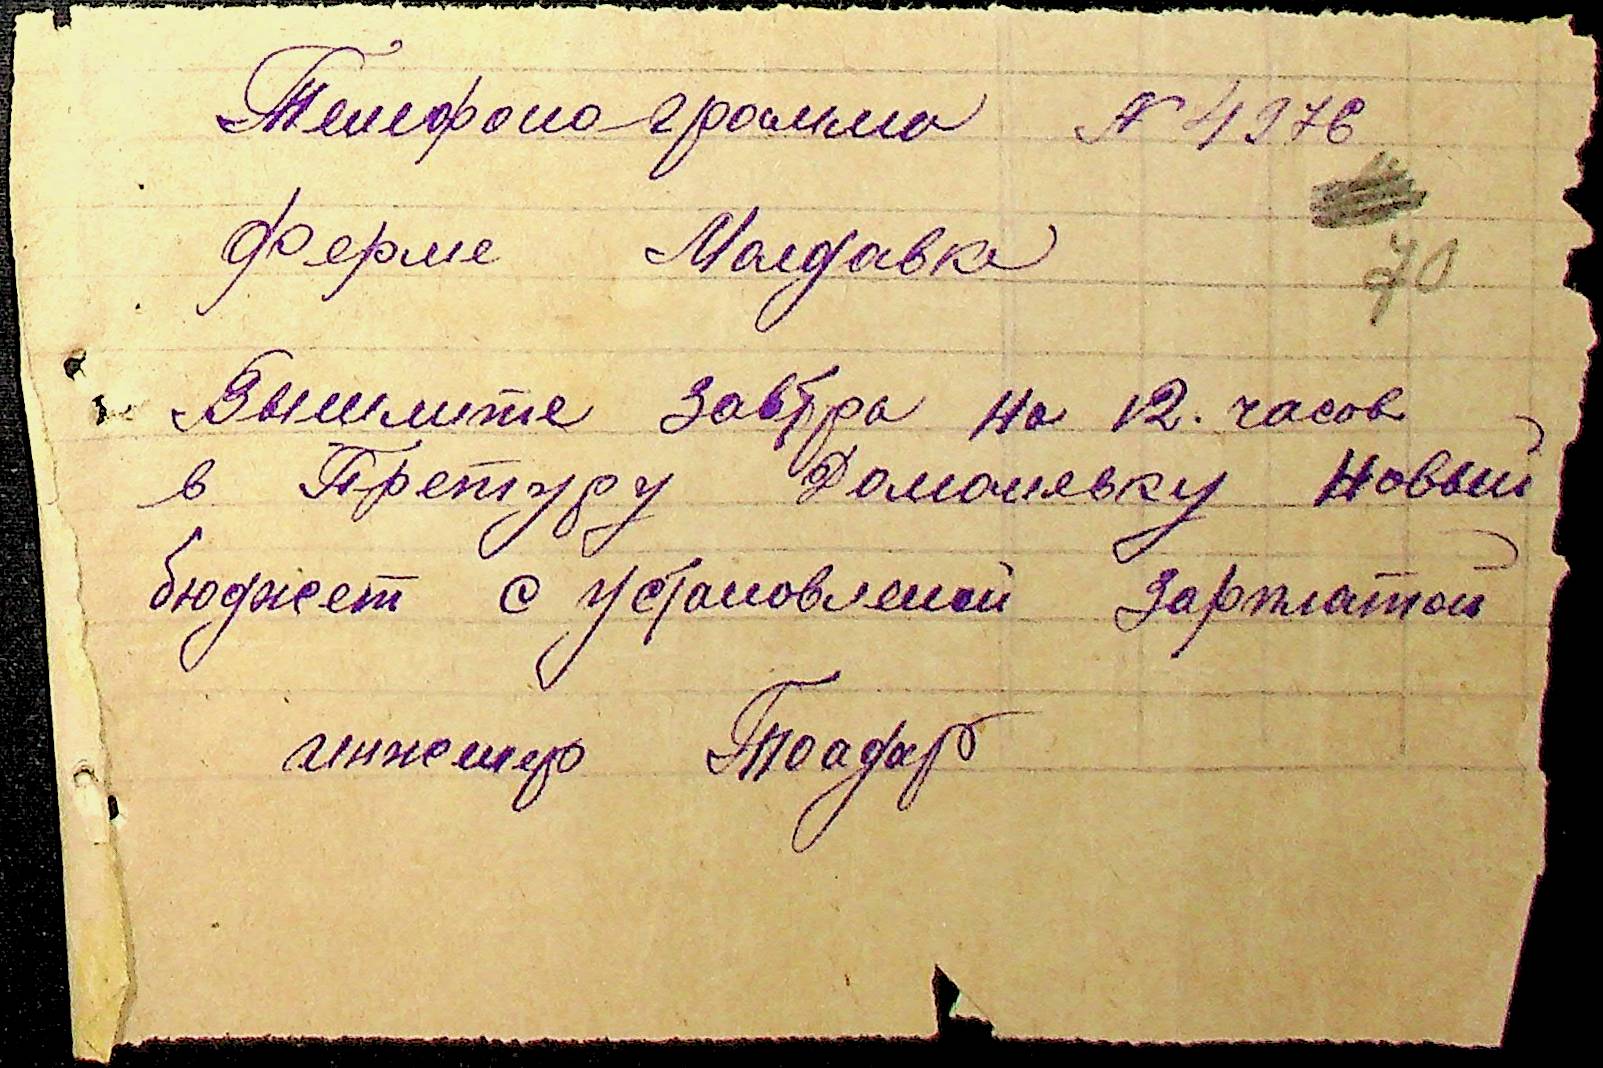 Телефонограмма № 4976
70
Ферме Молдавка
Вышлите завтра на 12. часов
в Претуру Доманевку новый
бюджет с установленой зарплатой
инженер Тоадар